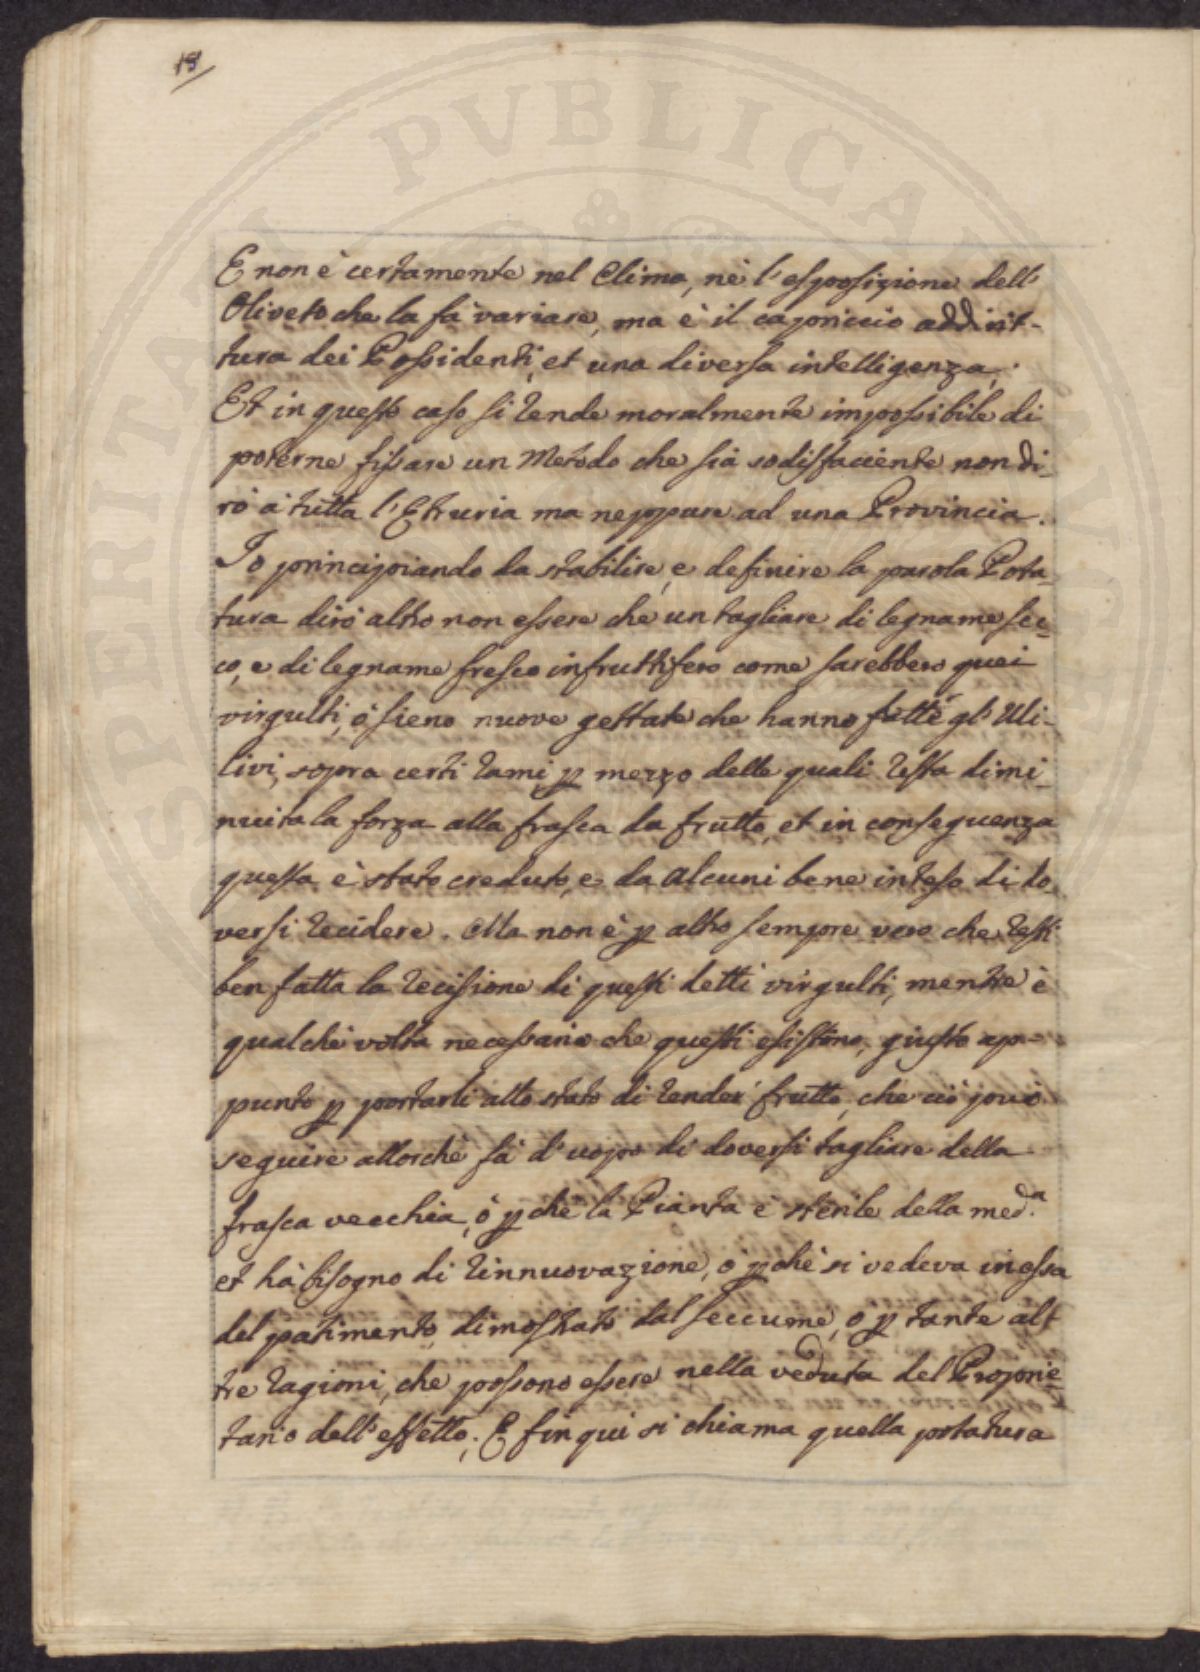 18
E non è certamente nel Clima, nè l'esposizione dell'
Oliveto che la fà variare, ma è il capriccio addirit-
tura dei Possidenti, et una diversa intelligenza.
Et in questo caso si rende moralmente impossibile di
poterne fissare un Metodo che sia sodisfaciente non di-
rò à tutta l'Etruria ma neppure ad una Provincia.
Io principiando da stabilire, e definire la parola Pota-
tura dirò altro non essere che un tagliare di legname sec-
co, e di legname fresco infruttifero come sarebbero quei
virgulti, ò sieno nuove gettate che hanno fatte gl'Uli-
livi, sopra certi rami, p mezzo delle quali resta dimi-
nuita la forza alla frasca da frutto, et in conseguenza
questa è stato creduto, e da alcuni bene inteso di do
versi recidere. Ma non è p altro sempre vero che resti
ben fatta la recisione di questi detti virgulti, mentre è
qualche volta necessario che questi esistino, giusto ap-
punto p portarli allo stato di render frutto, che ciò può
seguire allorchè fà d'uopo di doversi tagliare della
frasca vecchia, ò pchè la Pianta è sterile della med.a
et hà bisogno di rinnuovazione, o pchè si vedeva in essa
del patimento, dimostrato dal seccume, o p tante alt
tre ragioni, che possono essere nella veduta del Proprie-
tario dell'effetto. E fin qui si chiama quella potatura
SPERITATI PUBLICAE AUGE